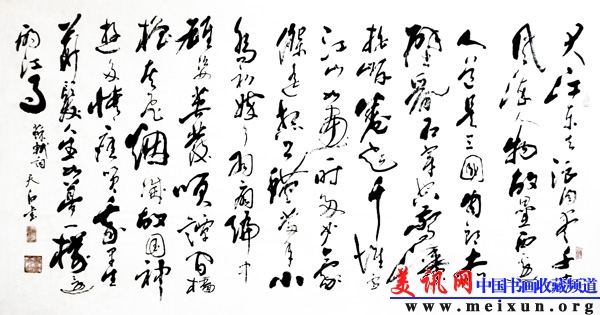 大江东去浪淘尽千古
风流人物故垒西边
人道是三國周郎赤
壁乱石穿空驚濤
拍岸卷起千堆雪
江山如画一时多少豪
傑遥想公瑾當年小
乔初嫁了羽扇纶巾
雄姿英发笑談间檣
櫓灰飞烟滅故国神
游多情應笑我早生
華髮人生如夢一樽还
酹江月
蘇軾詞
美讯网 中国书画收藏频道
www.meixun.org